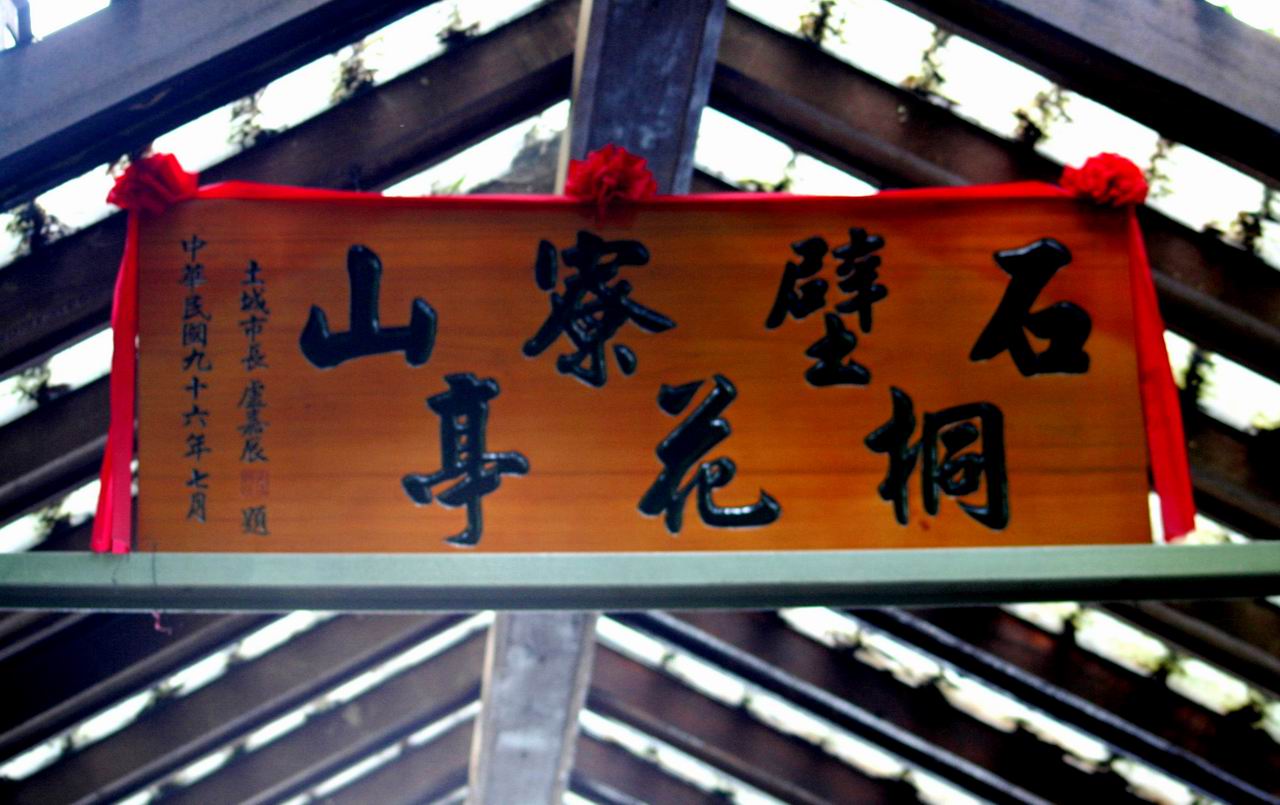 石壁寮山
桐花亭
土城市長 盧嘉辰 題
中華民國九十六年七月